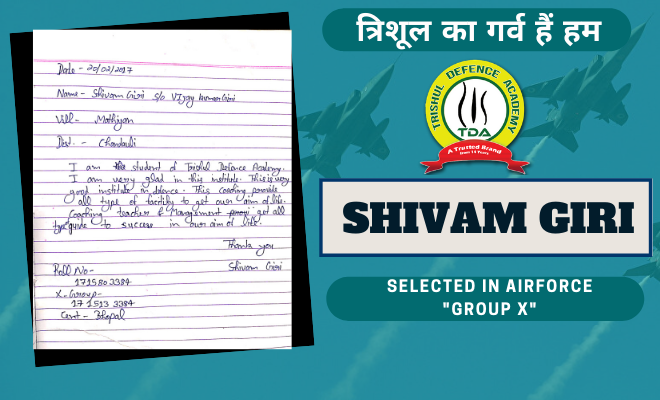 Date - 20/02/2017
Name - Shivam Giri S/o Vijay kumar Giri
Vill - Mathiyan
Dest. - Chandauli
I am the student of Trishul Defence Academy.
I am very glad in this institute. This is very
good institute in defence. This coaching provide
all type of facility to get our aim of life.
Coaching teacher & Mangement get all
type guide to success in our aim of life.
Thank you
Shivam Giri
Roll No -
1715803384
X-Group -
17 1513 3384
Cent - Bhopal
त्रिशूल का गर्व हैं हम
TRISHUL DEFENCE ACADEMY
TDA
A Trutted Brand
from 14 Years
SHIVAM GIRI
SELECTED IN AIRFORCE
"GROUP X"